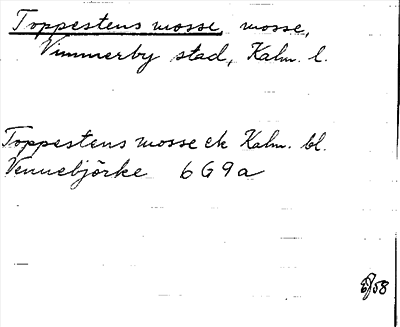 Toppestens mosse, mosse,
Vimmerby stad, Kalm. l.
Toppestens mosse ek Kalm. bl.
Vennebjörke 6G9a
/58